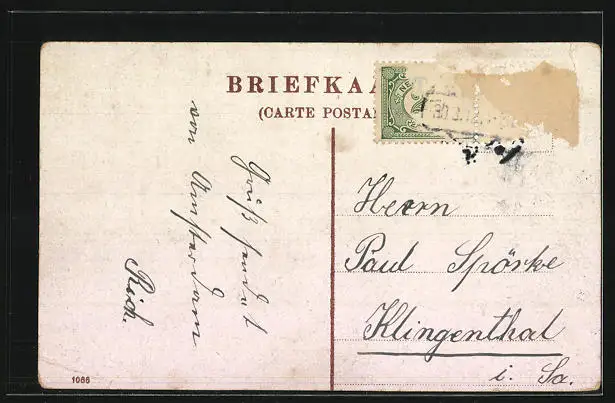 BRIEFKAA
(CARTE POSTA
NE
30 3.12
Gruß sendet
von Amsterdam
Rich.
Herrn
Paul Spörke
Klingenthal
i. Sa.
1086